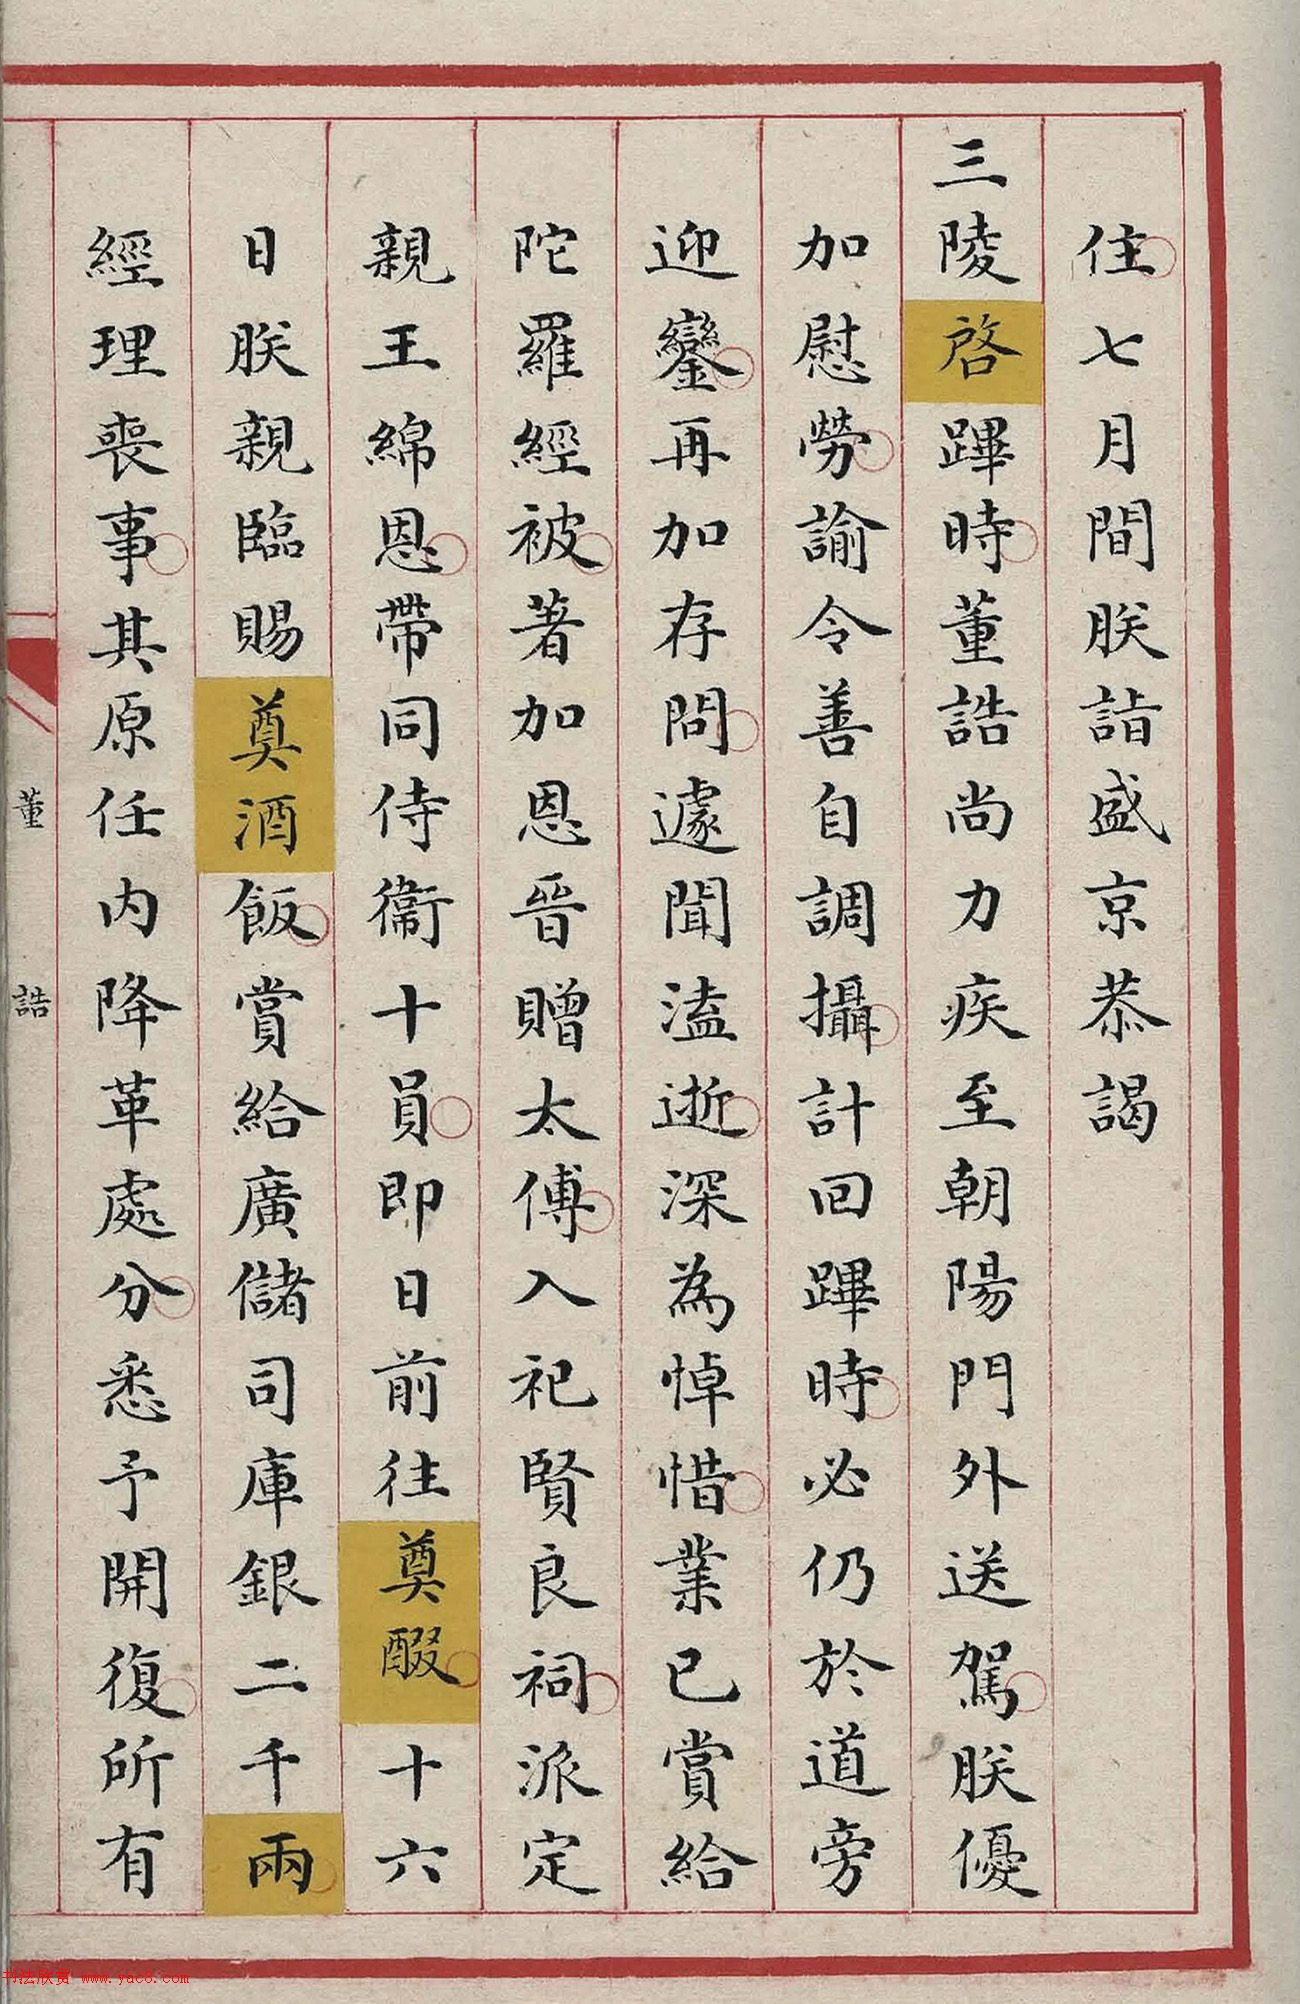 住七月間朕詣盛京恭謁
三陵啓蹕時董誥尚力疾至朝陽門外送駕朕優
加慰勞諭令善自調攝計回蹕時必仍於道旁
迎鑾再加存問遽聞溘逝深為悼惜業已賞給
陀羅經被著加恩晉贈太傅入祀賢良祠派定
親王綿恩帶同侍衛十員即日前往奠醊十六
日朕親臨賜奠酒飯賞給廣儲司庫銀二千兩
經理喪事其原任内降革處分悉予開復所有
董誥
书法欣赏 www.yac8.com